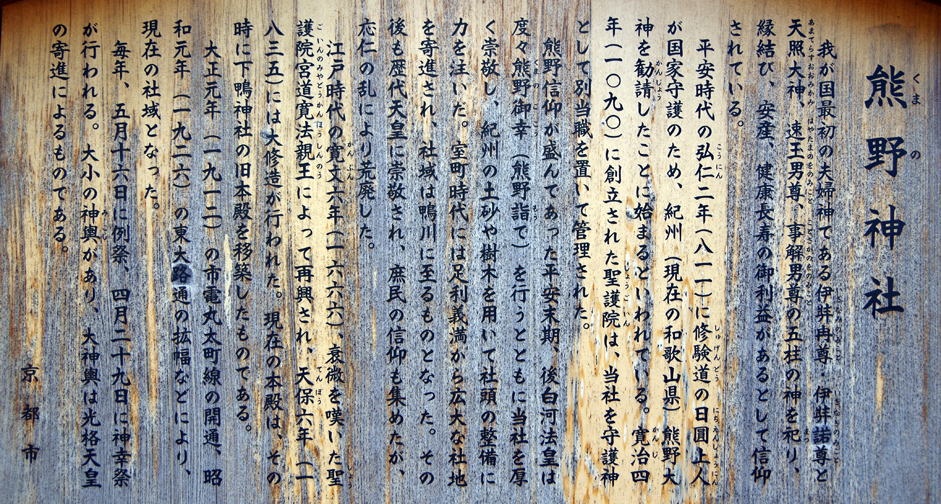 熊野神社
くまの
我が国最初の夫婦神である伊弉冉尊・伊弉諾尊と
天照大神、速玉男尊、事解男尊の五柱の神を祀り、
縁結び、安産、健康長寿の御利益があるとして信仰
されている。
平安時代の弘仁二年（八一一）に修験道の日圓上人
が国家守護のため、紀州（現在の和歌山県）熊野大
神を勧請したことに始まるといわれている。寛治四
年（一〇九〇）に創立された聖護院は、当社を守護神
として別当職を置いて管理された。
熊野信仰が盛んであった平安末期、後白河法皇は
度々熊野御幸（熊野詣て）を行うとともに当社を厚
く崇敬し、紀州の土砂や樹木を用いて社頭の整備に
力を注いだ。室町時代には足利義満から広大な社地
を寄進され、社域は鴨川に至るものとなった。その
後も歴代天皇に崇敬され、庶民の信仰も集めたが、
応仁の乱により荒廃した。
江戸時代の寛文六年（一六六六）、衰微を嘆いた聖
護院宮道寛法親王によって再興され、天保六年（一
八三五）には大修造が行われた。現在の本殿は、その
時に下鴨神社の旧本殿を移築したものである。
大正元年（一九一二）の市電丸太町線の開通、昭
和元年（一九二六）の東大路通の拡幅などにより、
現在の社域となった。
毎年、五月十六日に例祭、四月二十九日に神幸祭
が行われる。大小の神輿があり、大神輿は光格天皇
の寄進によるものである。
京都市